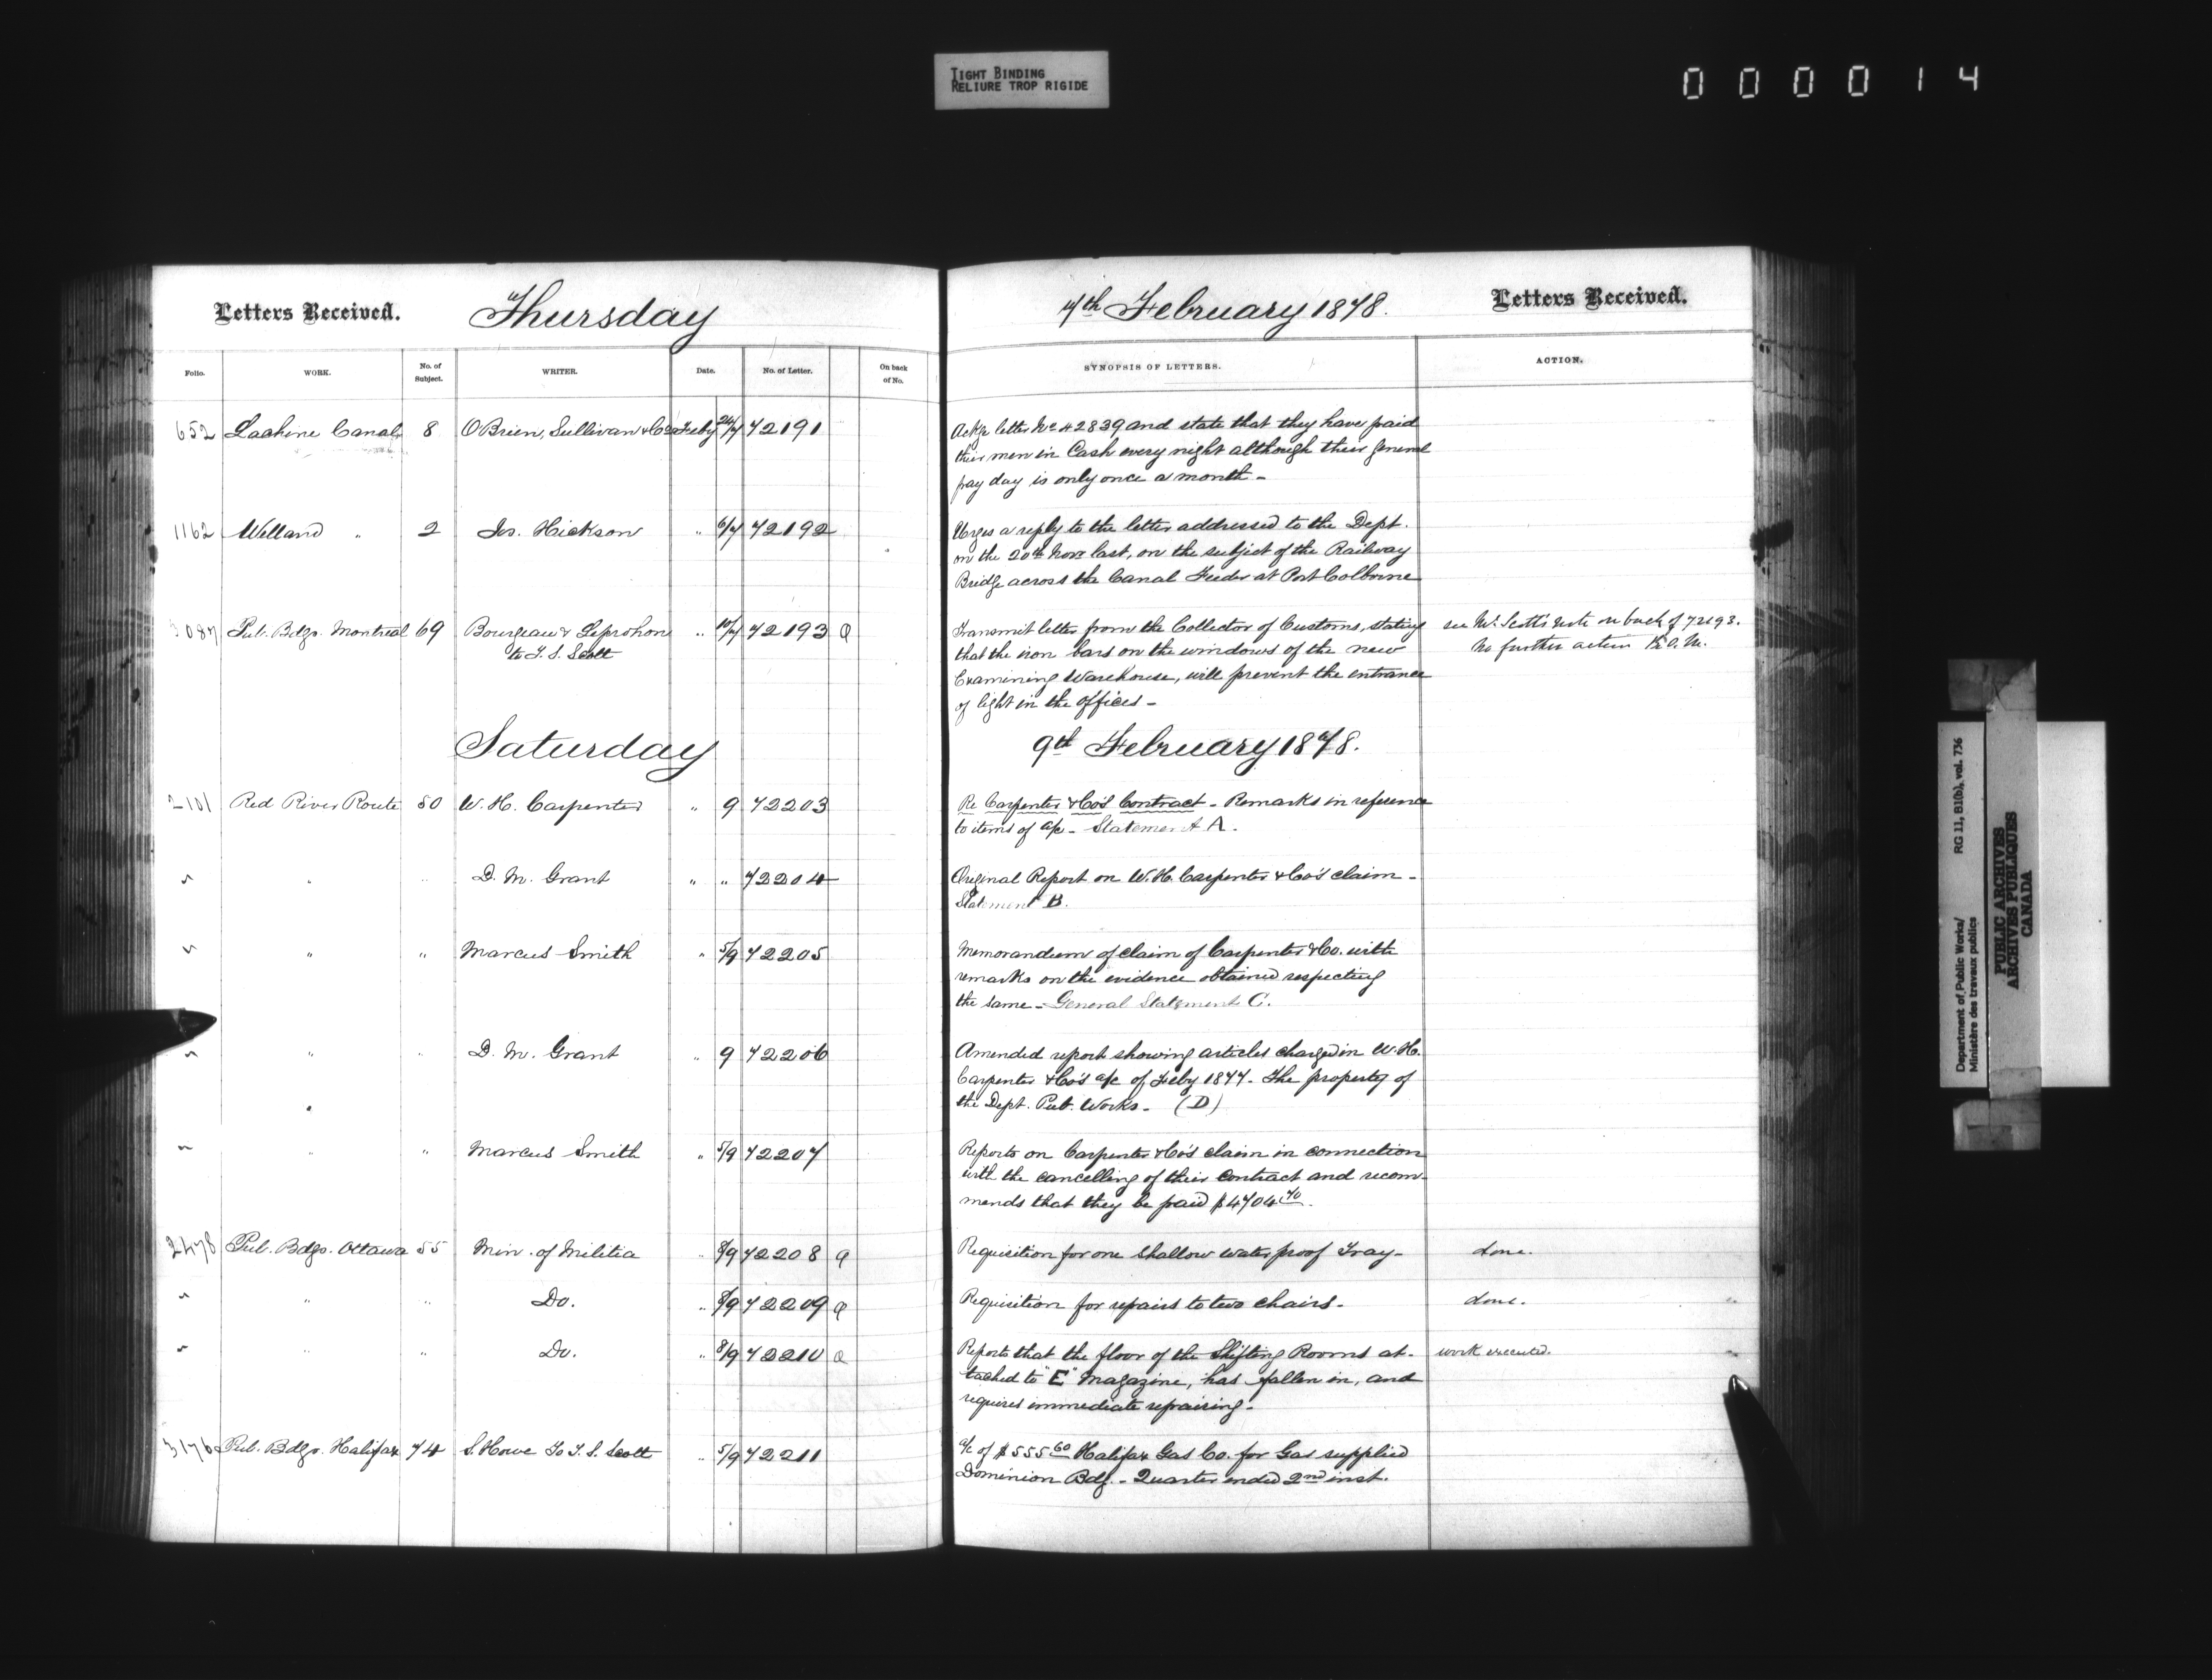 TIGHT BINDING
RELIURE TROP RIGIDE
000014
Letters Received. Thursday 7th February 1878. Letters Received.
Folio. WORK. No. of Subject. WRITER. Date. No. of Letter. On back of No. SYNOPSIS OF LETTERS. ACTION.
652 Lachine Canal 8 O'Brien, Sullivan & Co Feby /7 72191 Ackge letter No 42839 and state that they have paid
their men in Cash every night although their general
pay day is only once a month -
1162 Welland " 2 Jos. Hickson " 6/7 72192 Urges a reply to the letter addressed to the Dept.
on the 20th Novr last, on the subject of the Railway
Bridge across the Canal Feeder at Port Colborne
3087 Pub. Bdgs. Montreal 69 Bourgeau & Leprohon " /7 72193 Q Transmit letter from the Collector of Customs, stating see Mr. Scott's note on back of 72193.
to T. S. Scott that the iron bars on the windows of the new No further action
Examining Warehouse, will prevent the entrance
of light in the offices -
Saturday 9th February 1878.
2101 Red River Route 80 W. H. Carpenter " 9 72203 Re Carpenter & Co's Contract - Remarks in reference
to items of a/c - Statement A.
" " " D. M. Grant " " 72204 Original Report on W. H. Carpenter & Co's claim -
Statement B.
" " " Marcus Smith " 5/9 72205 Memorandum of claim of Carpenter & Co. with
remarks on the evidence obtained respecting
the same - General Statement C.
" " " D. M. Grant " 9 72206 Amended report showing articles charged in W. H.
Carpenter & Co's a/c of Feby 1877. The property of
the Dept. Pub. Works - (D)
" " " Marcus Smith " 5/9 72207 Reports on Carpenter & Co's claim in connection
with the cancelling of their contract and recom-
mends that they be paid $4704.70.
2478 Pub. Bdgs. Ottawa 55 Min. of Militia " 8/9 72208 Q Requisition for one shallow water proof Tray - done.
" " " Do. " 8/9 72209 Q Requisition for repairs to two chairs. done.
" " " Do. " 8/9 72210 Q Reports that the floor of the Shifting Rooms at- work executed.
tached to "E" Magazine, has fallen in, and
requires immediate repairing -
3176 Pub. Bdgs. Halifax 74 S. Howe To T. S. Scott " 5/9 72211 a/c of $555.60 Halifax Gas Co. for Gas supplied
Dominion Bdg. - Quarter ended 2nd inst.
Department of Public Works/ RG 11, B1(b), vol. 736
Ministère des travaux publics
PUBLIC ARCHIVES
ARCHIVES PUBLIQUES
CANADA